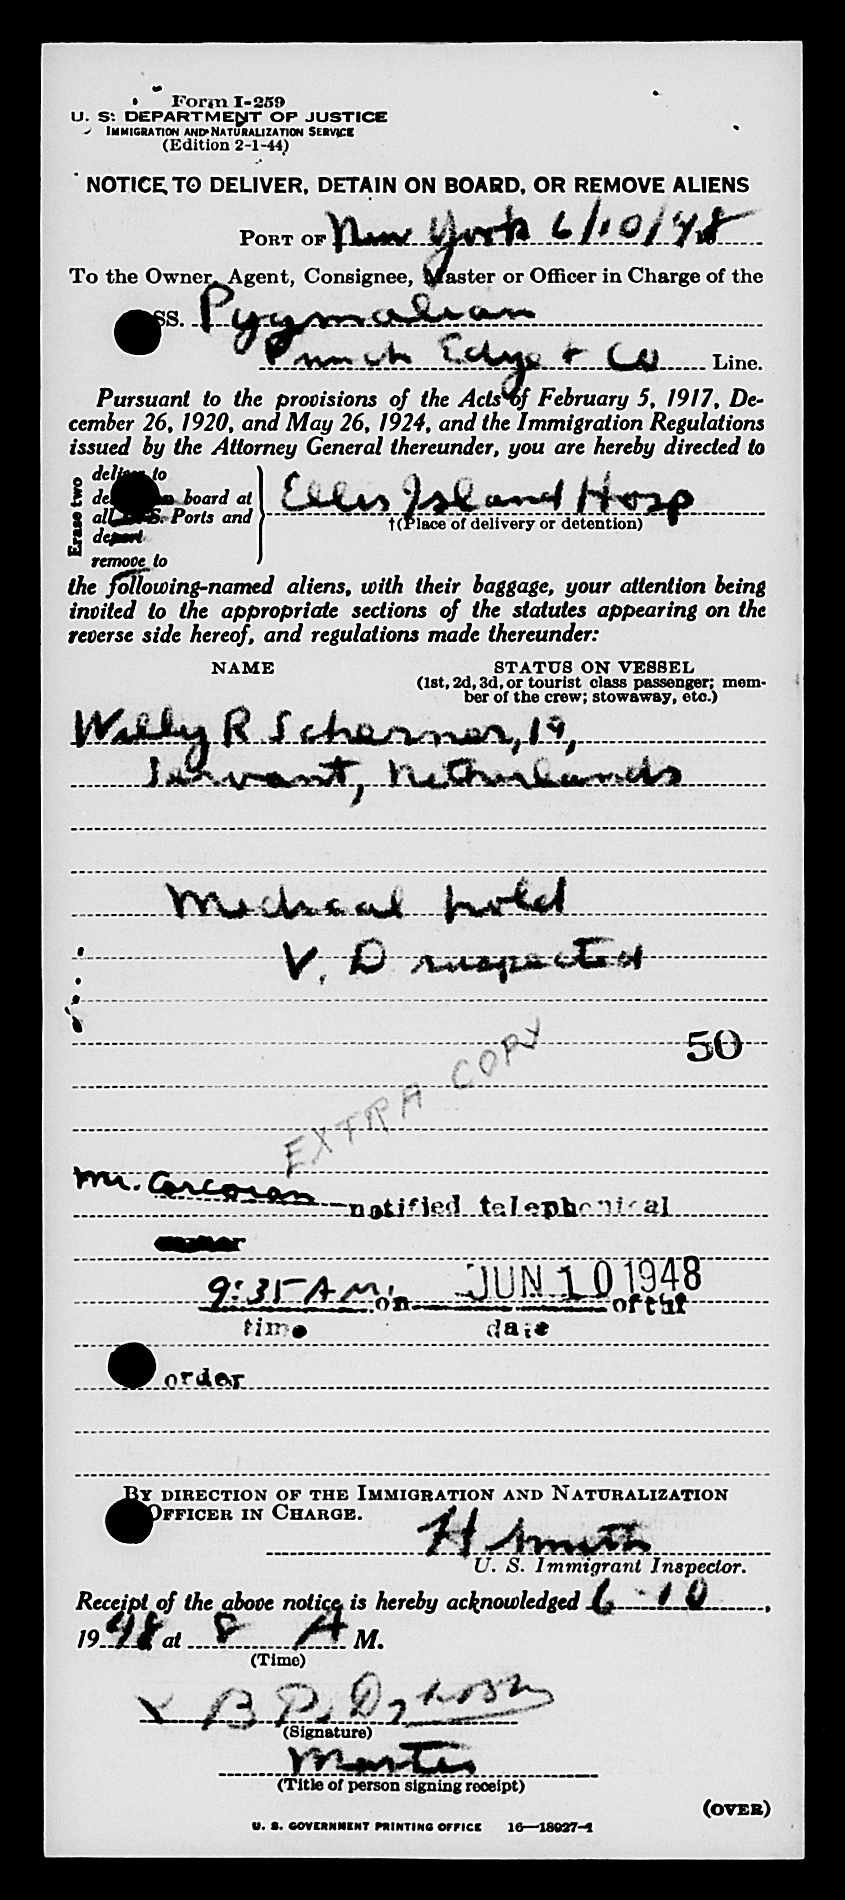 Form I-259
U. S. DEPARTMENT OF JUSTICE
IMMIGRATION AND NATURALIZATION SERVICE
(Edition 2-1-44)
NOTICE TO DELIVER, DETAIN ON BOARD, OR REMOVE ALIENS
PORT OF New York 6/10/48
To the Owner, Agent, Consignee, Master or Officer in Charge of the
SS. Pygmalian
Edye + Co Line.
Pursuant to the provisions of the Acts of February 5, 1917, De-
cember 26, 1920, and May 26, 1924, and the Immigration Regulations
issued by the Attorney General thereunder, you are hereby directed to
Erase two
deliver to
board at
all U. S. Ports and
deport
remove to
Ellis Island Hosp
†(Place of delivery or detention)
the following-named aliens, with their baggage, your attention being
invited to the appropriate sections of the statutes appearing on the
reverse side hereof, and regulations made thereunder:
NAME STATUS ON VESSEL
(1st, 2d, 3d, or tourist class passenger; mem-
ber of the crew; stowaway, etc.)
Willy R Schermer, 19,
Servant, Netherlands
Medical hold
V. D suspected
50
EXTRA COPY
Mr. Corcoran notified telephonical
9:35 A M. on JUN 10 1948 of the
time date
order
BY DIRECTION OF THE IMMIGRATION AND NATURALIZATION
OFFICER IN CHARGE.
H Smith
U. S. Immigrant Inspector.
Receipt of the above notice is hereby acknowledged 6-10,
1948 at 8 A M.
(Time)
(Signature)
Master
(Title of person signing receipt)
(OVER)
U. S. GOVERNMENT PRINTING OFFICE 16—18027-1